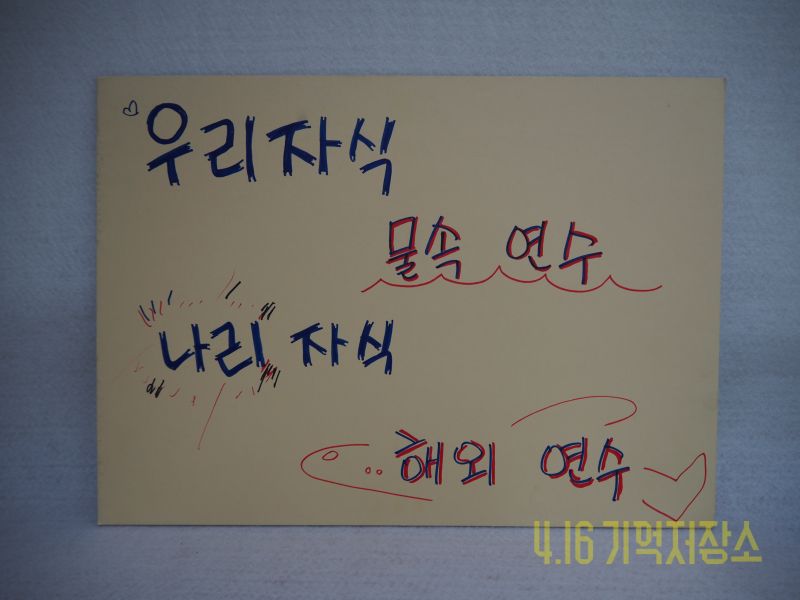 우리자식
물속 연수
나리 자식
해외 연수
4.16 기억저장소